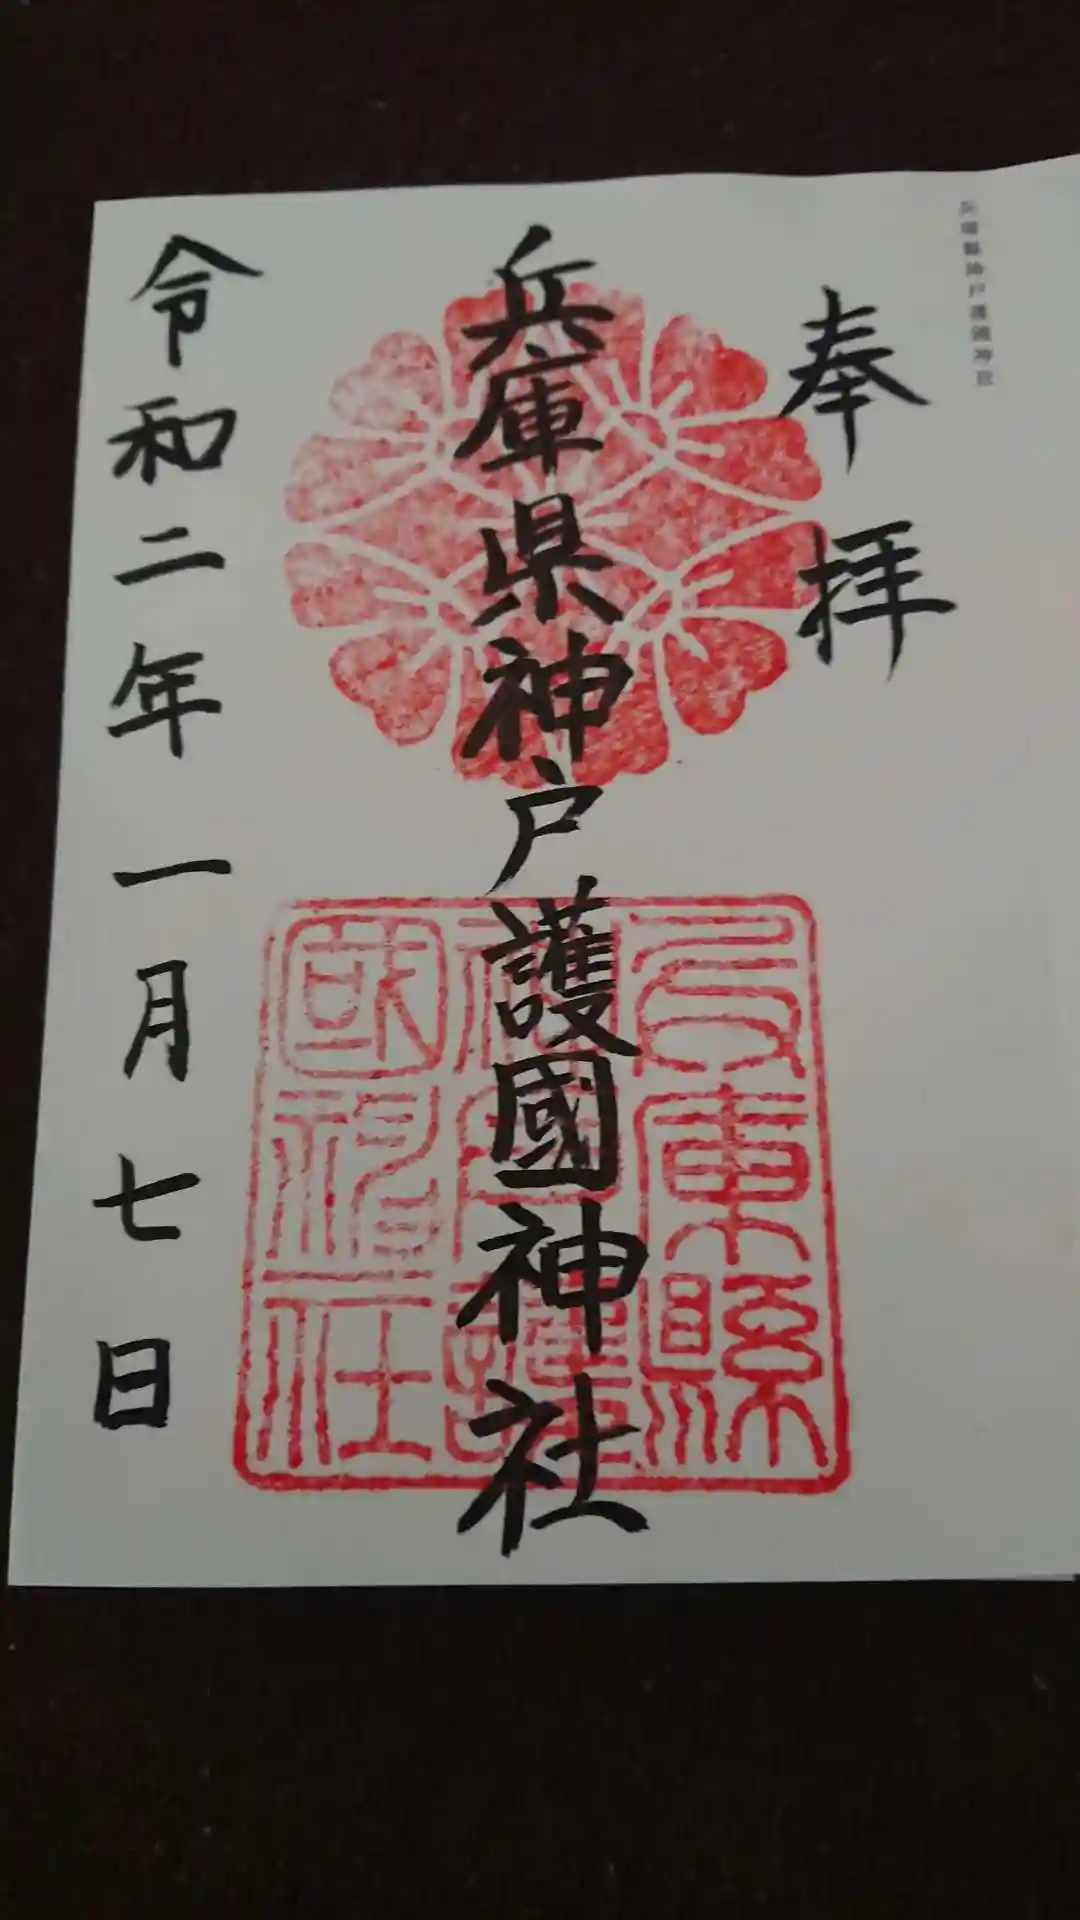 兵庫縣神戸護國神社
奉拝
兵庫県神戸護國神社
兵庫縣
神戸護
國神社
令和二年一月七日